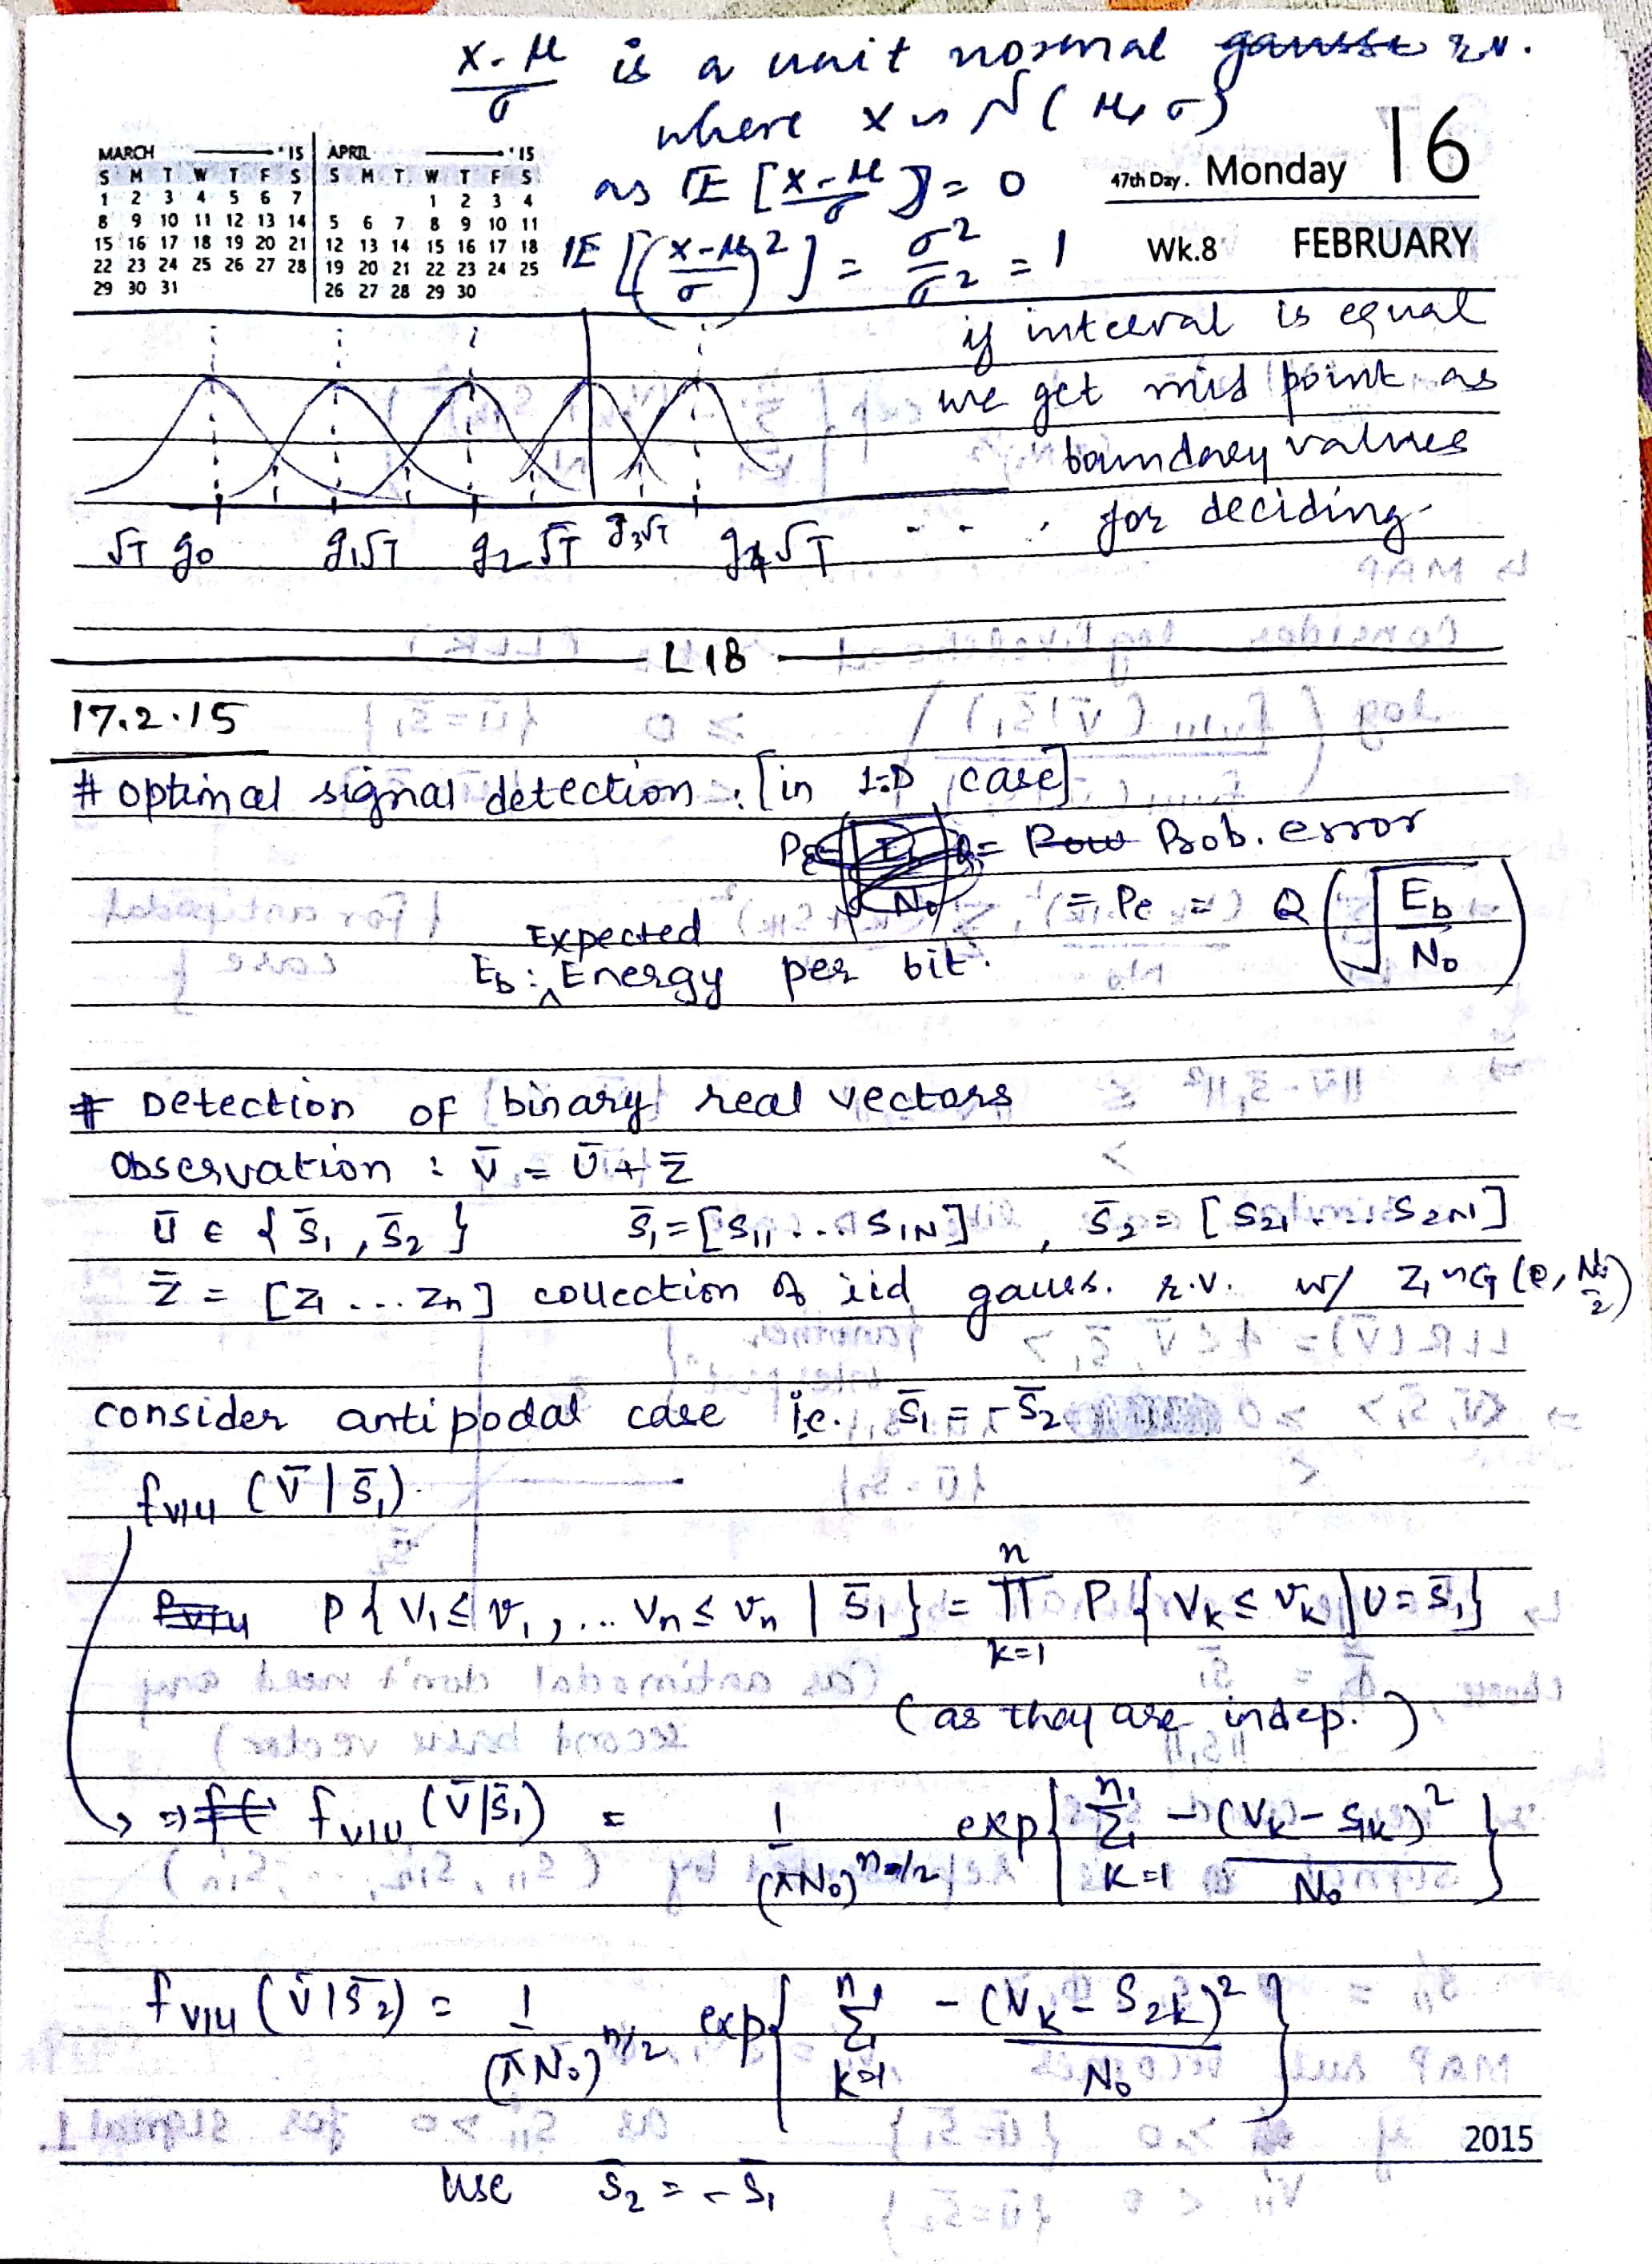 (x-μ)/σ is a unit normal r.v.
where x ~ N(μ, σ)
as E[(x-μ)/σ] = 0
E[((x-μ)/σ)²] = σ²/σ² = 1
MARCH '15 APRIL '15
S M T W T F S S M T W T F S
1 2 3 4 5 6 7 1 2 3 4
8 9 10 11 12 13 14 5 6 7 8 9 10 11
15 16 17 18 19 20 21 12 13 14 15 16 17 18
22 23 24 25 26 27 28 19 20 21 22 23 24 25
29 30 31 26 27 28 29 30
47th Day. Monday 16
Wk.8 FEBRUARY
if interval is equal
we get mid point as
boundary values
for deciding
√T g₀ g₁√T g₂√T g₃√T g₄√T . . .
L18
17.2.15
# optimal signal detection : [in 1-D case]
= Prob. error
= Pe = Q(√(E_b/N₀))
E_b : Expected Energy per bit.
# Detection of binary real vectors
Observation : V̄ = Ū + Z̄
Ū ∈ {S̄₁, S̄₂} S̄₁ = [S₁₁ ... S₁N] , S̄₂ = [S₂₁ ... S₂N]
Z̄ = [Z₁ ... Zn] collection of iid gauss. r.v. w/ Z₁ ~ G(0, N₀/2)
consider antipodal case i.e. S̄₁ = -S̄₂
f_V|U (V̄ | S̄₁)
P{V₁ ≤ v₁, ... Vn ≤ vn | S̄₁} = ∏_{k=1}^{n} P{Vk ≤ vk | U = S̄₁}
(as they are indep.)
⇒ f_V|U (V̄|S̄₁) = 1/(πN₀)^{n/2} exp{ Σ_{k=1}^{n} -(Vk - S₁k)²/N₀ }
f_V|U (V̄|S̄₂) = 1/(πN₀)^{n/2} exp{ Σ_{k=1}^{n} -(Vk - S₂k)²/N₀ }
2015
use S̄₂ = -S̄₁